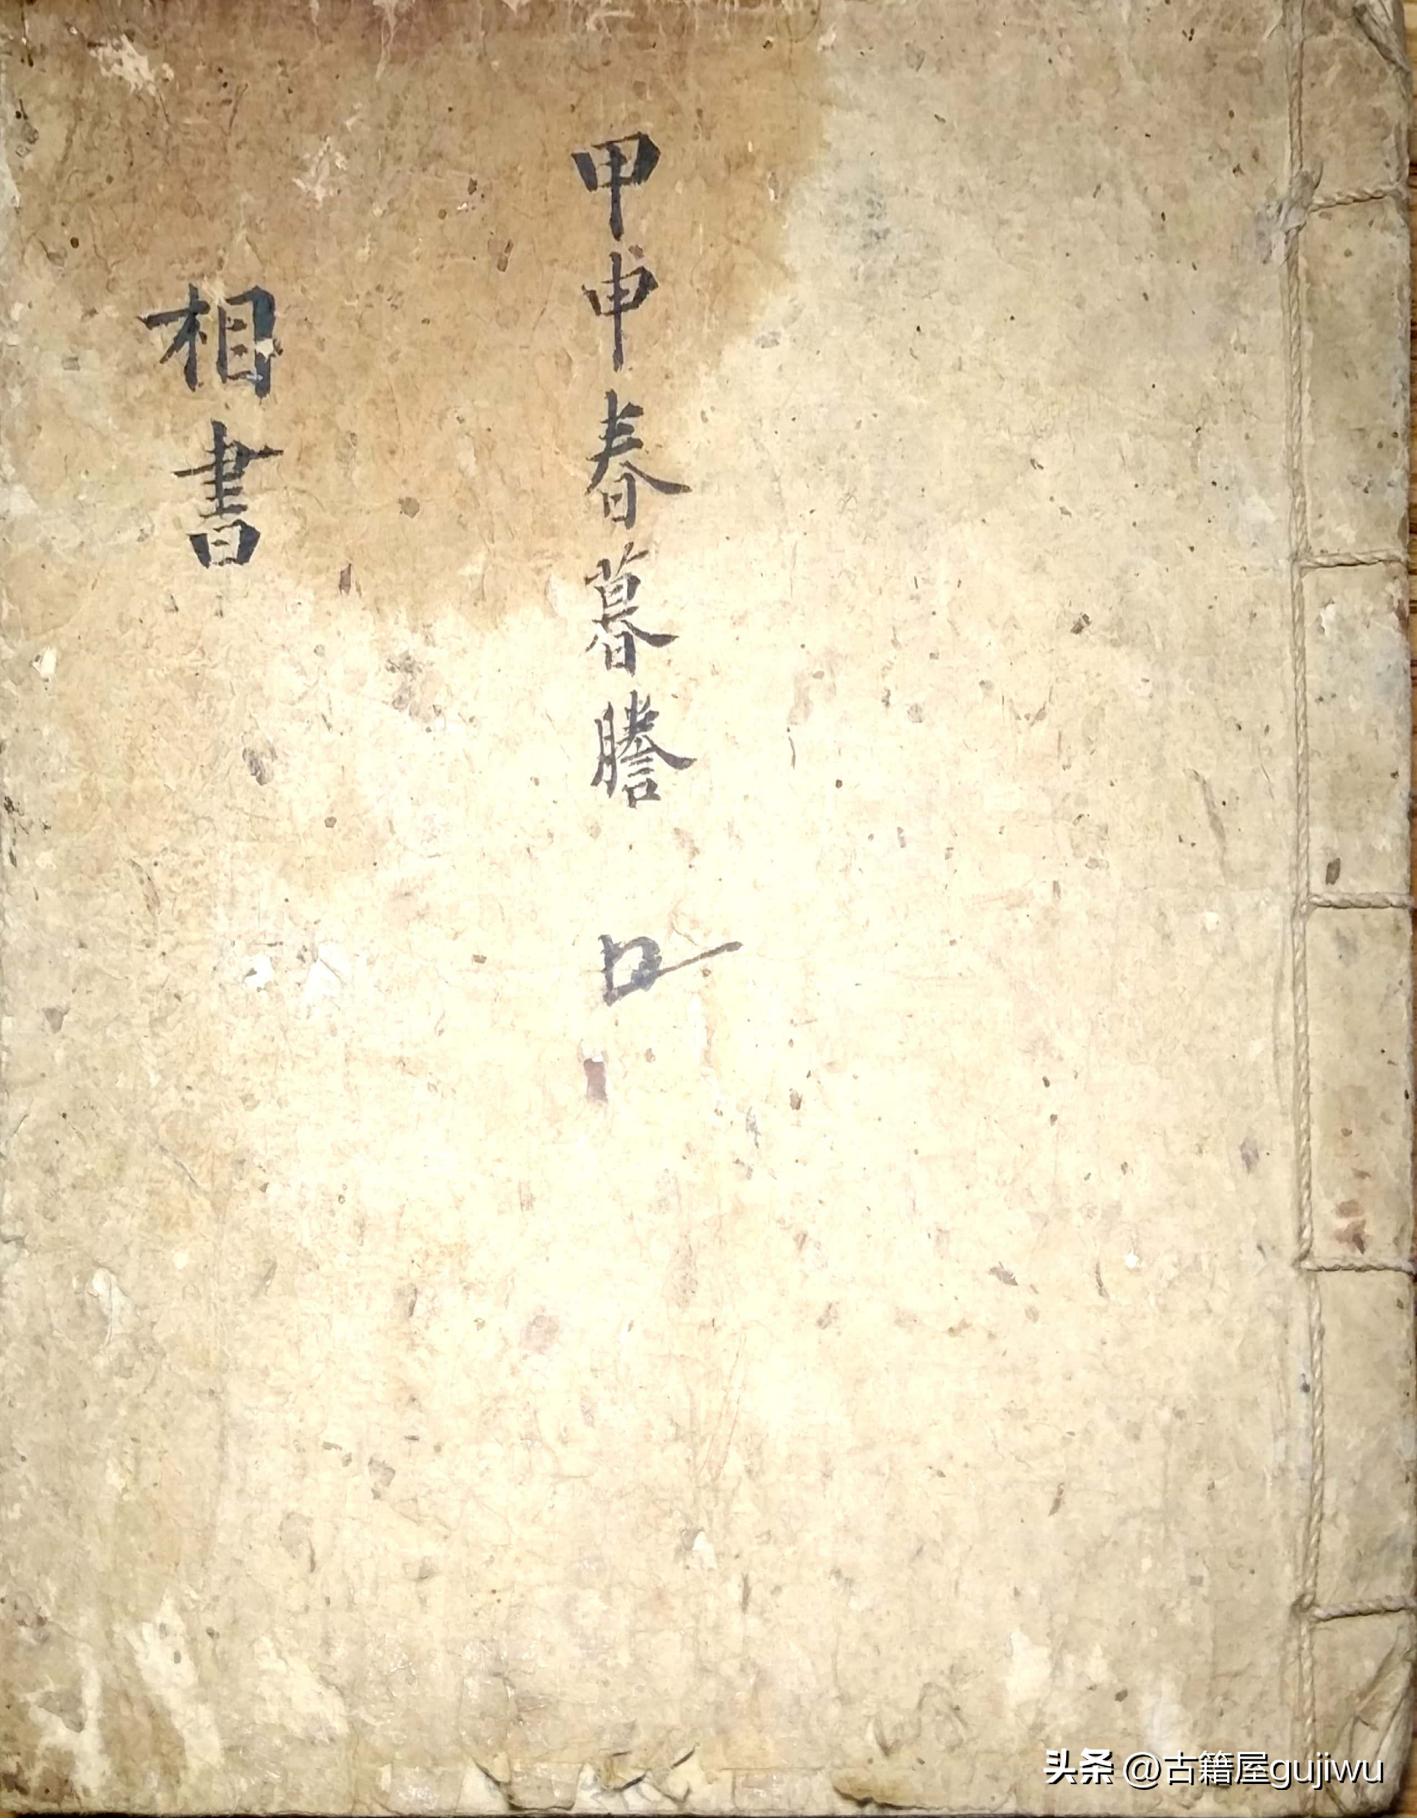 甲申春暮謄
相書
头条 @古籍屋gujiwu